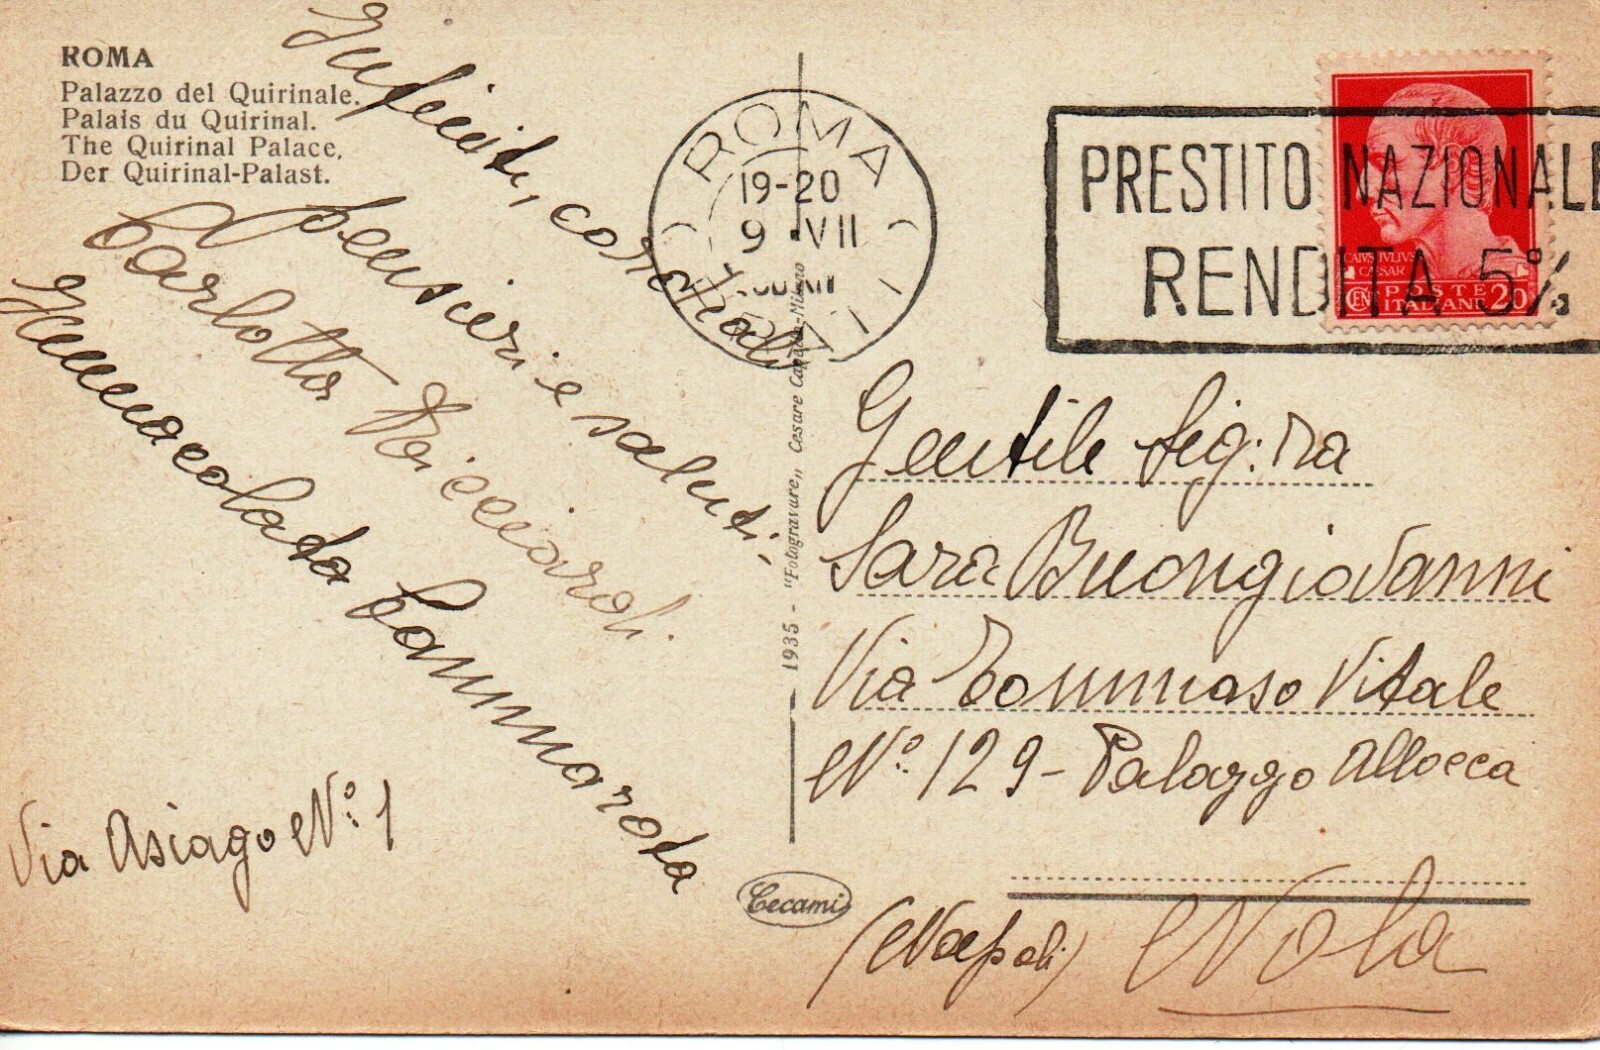 ROMA
Palazzo del Quirinale.
Palais du Quirinal.
The Quirinal Palace.
Der Quirinal-Palast.
Infiniti, cordiali
pensieri e saluti -
Carlotta Ricciaroli.
Immacolata Cammarota
Via Asiago N:º 1
ROMA
19-20
9 · VII
1935 - "Fotogravure„ Cesare Capello-Milano
Cecami
PRESTITO NAZIONALE
RENDITA 5%
CAIVS IVLIVS
CAESAR
CEN POSTE ITALIANE 20
Gentile Sig:ra
Sara Buongiovanni
Via Tommaso Vitale
Nº. 129 - Palazzo Allocca
(Napoli) Nola